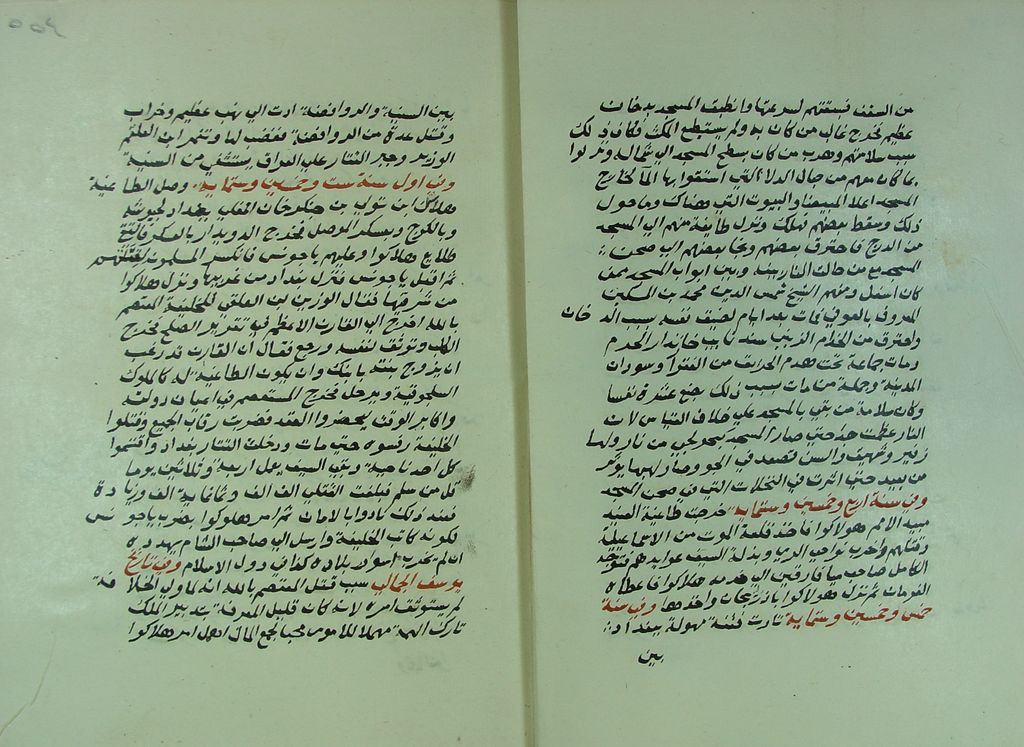 من السقف فسبقتهم لسرعتها وانطبق المسجد بدخان
عظيم فخرج غالب من كان به ولم يستطع المكث فكان ذلك
سبب سلامتهم وهرب من كان بسطح المسجد الى شماله ونزلوا
بما كان معهم من حبال الدلاء التي استقوا بها الماء لخارج
المسجد اعلا الميضاة والبيوت التي هناك وما حول
ذلك وسقط بعضهم فهلك ونزل طايفة منهم الى المسجد
من الدرج فاحترق بعضهم ونجا بعضهم الى صحن
المسجد مع من حالت النار بينه وبين ابواب المسجد ممن
كان اسفل ومنهم الشيخ شمس الدين محمد بن السكين
المعروف بالعوفي فمات بعد ايام لضيق نفسه بسبب الدخان
واحترق من الخدام الزيني سند نايب خازندار الحرم
ومات جماعة تحت هدم الحريق من الفقرا وسودان
المدينة وجملة من مات بسبب ذلك بضع عشرة نفسا
وكان سلامة من بقي بالمسجد على خلاف القياس لان
النار عظمت جدا حتى صار المسجد كبحر لجي من نار ولها
زفير وشهيق والسن تصعد في الجو وصار لهبها يوثر
من بعيد حتى اثرت في النخلات التي في صحن المسجد
وفي سنة اربع وخمسين وستماية خرجت طاغية العبيد
مبيد الامم هولاكوا فاخذ قلعة الموت من الاسماعيلية
وقتلهم واخرب نواحي الري وبذلة السيف عوايدهم فتوجه
الكامل صاحب ميافارقين الى خدمة هلاكوا فاعطاه
الفرمان ثم نزل هولاكوا باذربيجان واخذها وفي سنة
خمس وخمسين وستماية ثارت فتنة مهولة ببغداد
بين
بين السنية والروافضة ادت الى نهب عظيم وخراب
وقتل عدة من الروافضة فغضب لها وتنمر ابن العلقم
الوزير وجسر التتار على العراق يستشفي من السنية
وفي اول سنة ست وخمسين وستماية وصل الطاغية
هلاكو ابن تولي بن جنكزخان المغلي بغداد بجيوشه
وبالكرج وبعسكر الموصل فخرج الدويدار بالعسكر فالتقى
طلايع هلاكوا وعليهم باجونس فانكسر المسلمون لقلتهم
ثم اقبل باجونس فنزل بغداد من غربيها ونزل هلاكوا
من شرقها فقال الوزير ابن العلقمي للخليفة المستعصم
بالله اخرج الى القاان الاعظم في تقرير الصلح فخرج
الكلب وتوثق لنفسه ورجع فقال ان القاان قد رغب
ان يزوج بنته بابنك وان يكون الطاعية له كالملوك
السلجوقية ويرحل فخرج المستعصم في اعيان دولته
واكابر الوقت ليحضروا العقد فضربت رقاب الجميع وقتلوا
الخليفة رفسوه حتى مات ودخلت التتار بغداد واقتسموا
كل احد ناحية وبقي السيف يعمل اربعة وثلاثين يوما
قل من سلم فبلغت القتلى الف الف وثمانماية الف وزيادة
فعند ذلك نادوا بالامان ثم امر هلوكوا بضرب باجونس
لكونه كاتب الخليفة وارسل الى صاحب الشام يهدده
ان لم يخرب اسوار بلاده كذا في دول الاسلام وفي تاريخ
يوسف الجمالي سبب قتل المستعصم بالله انه لما ولي الخلافة
لم يستوثق امره لانه كان قليل المعرفة بتدبير الملك
نازل الهمة مهملا للامور محبا لجمع المال اهمل امر هلاكوا